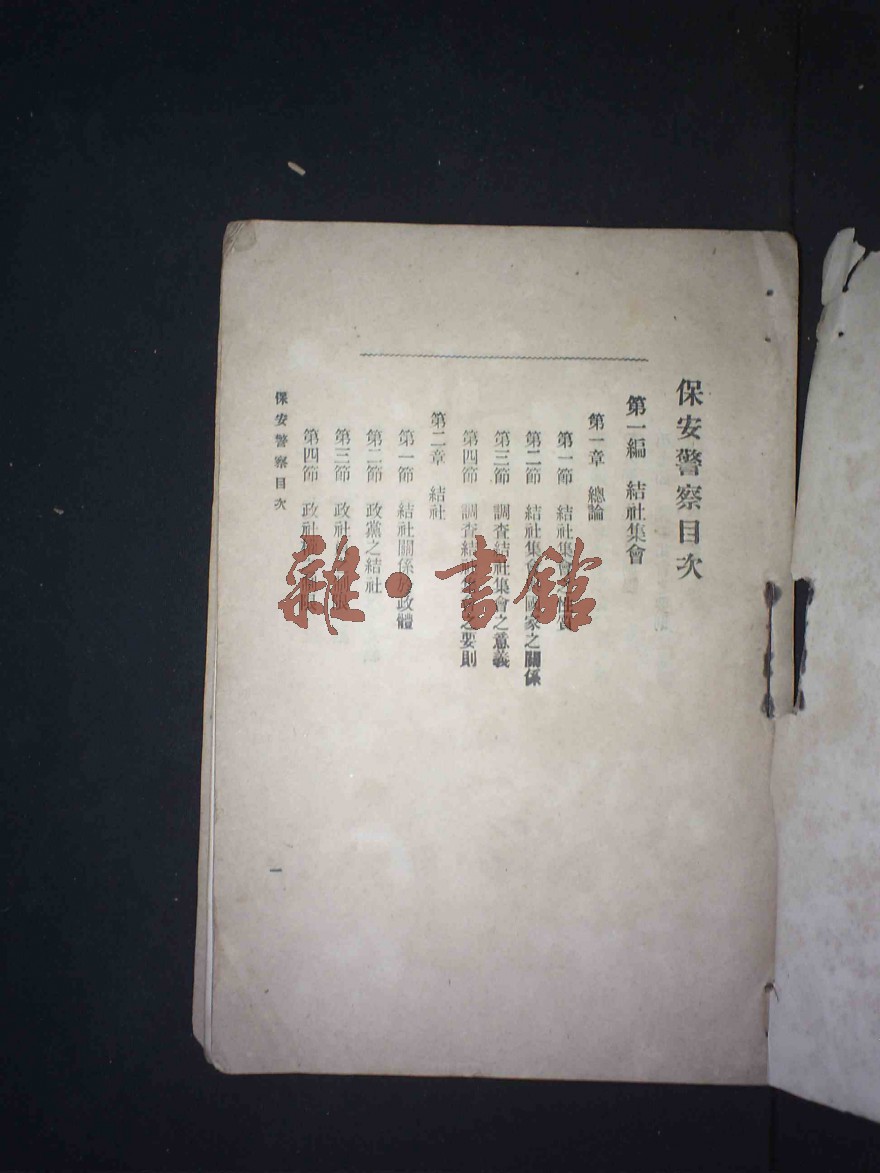 保安警察目次
第一編 結社集會
第一章 總論
第一節 結社集會 性質
第二節 結社集會 國家之關係
第三節 調查結社集會之意義
第四節 調查結 之要則
第二章 結社
第一節 結社關係 政體
第二節 政黨之結社
第三節 政社
第四節 政社
保安警察目次
一
雜·書館